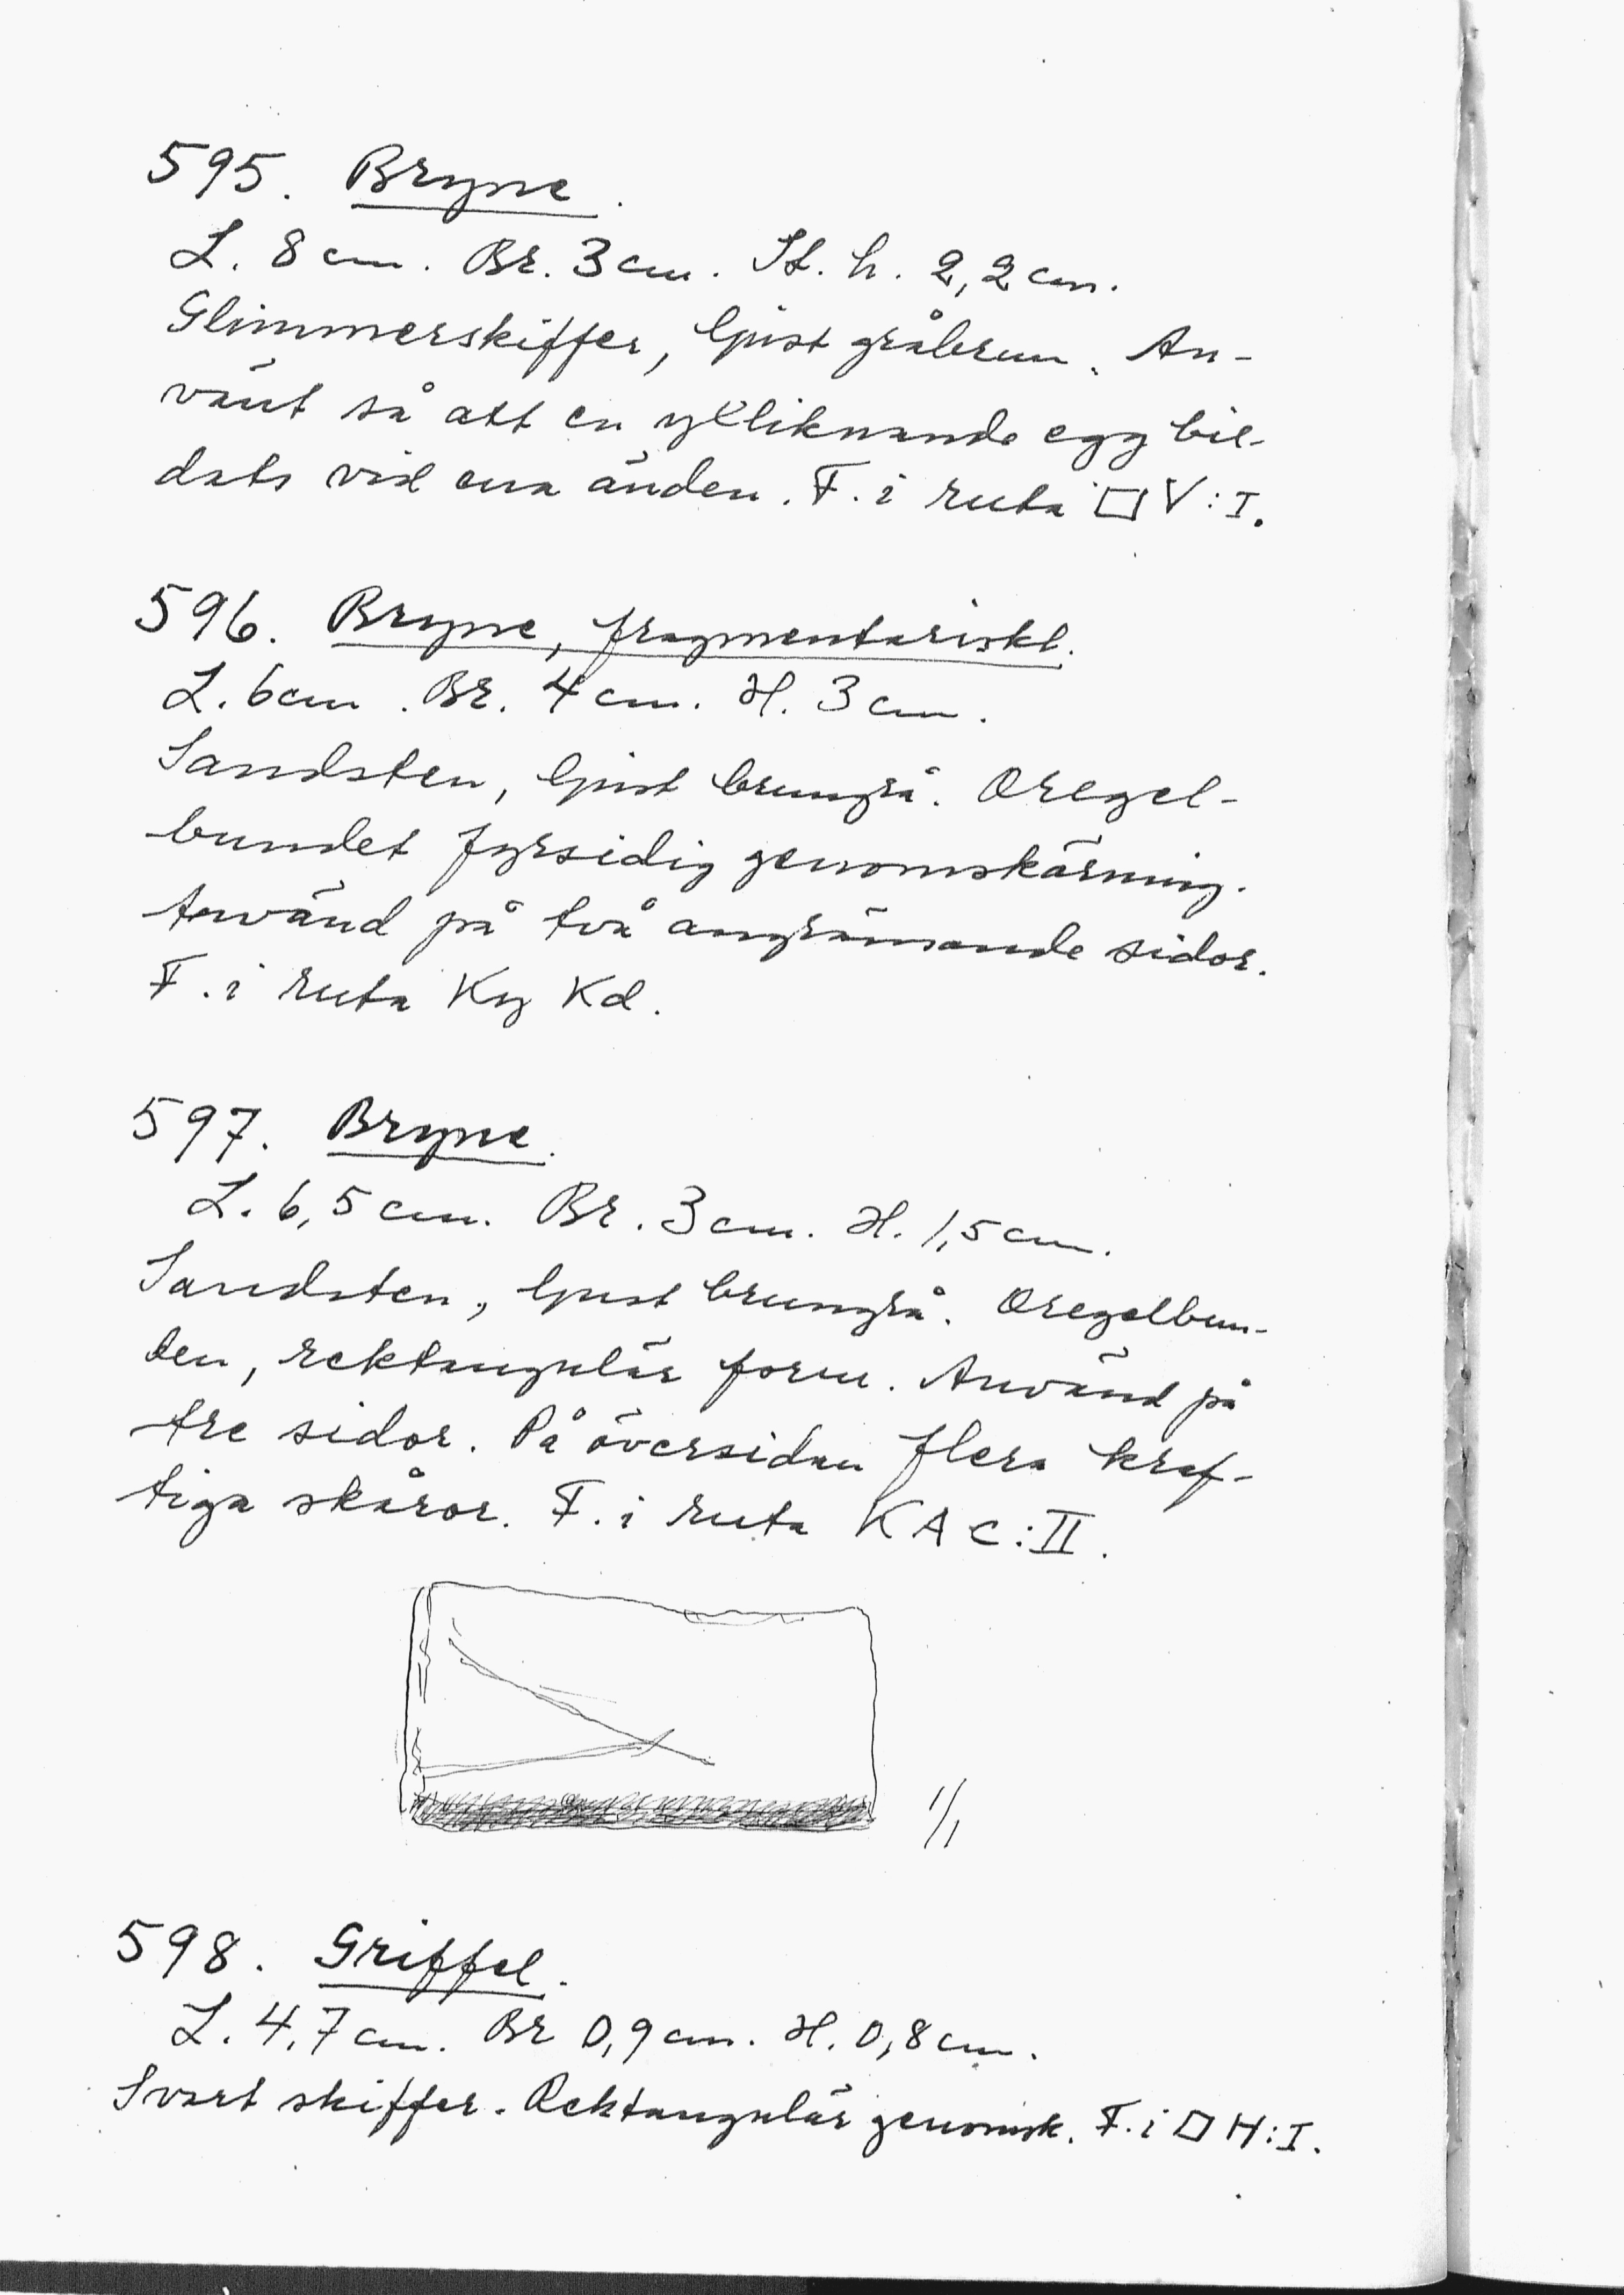 595. Bryne.
L. 8 cm. Br. 3 cm. St. h. 2,2 cm.
Glimmerskiffer, ljust gråbrun. An-
vänt så att en yxliknande egg bil-
dats vid ena änden. F. i ruta □ V:I.
596. Bryne, fragmentariskt.
L. 6 cm. Br. 4 cm. H. 3 cm.
Sandsten, ljust brungrå. Oregel-
bundet fyrsidig genomskärning.
Använd på två angränsande sidor.
F. i ruta Ky Kd.
597. Bryne.
L. 6,5 cm. Br. 3 cm. H. 1,5 cm.
Sandsten, ljust brungrå. Oregelbun-
den, rektangulär form. Använd på
tre sidor. På översidan flera kraf-
tiga skåror. F. i ruta KAC:II.
1/1
598. Griffel.
L. 4,7 cm. Br 0,9 cm. H. 0,8 cm.
Svart skiffer. Rektangulär genomsk. F. i □ H:I.